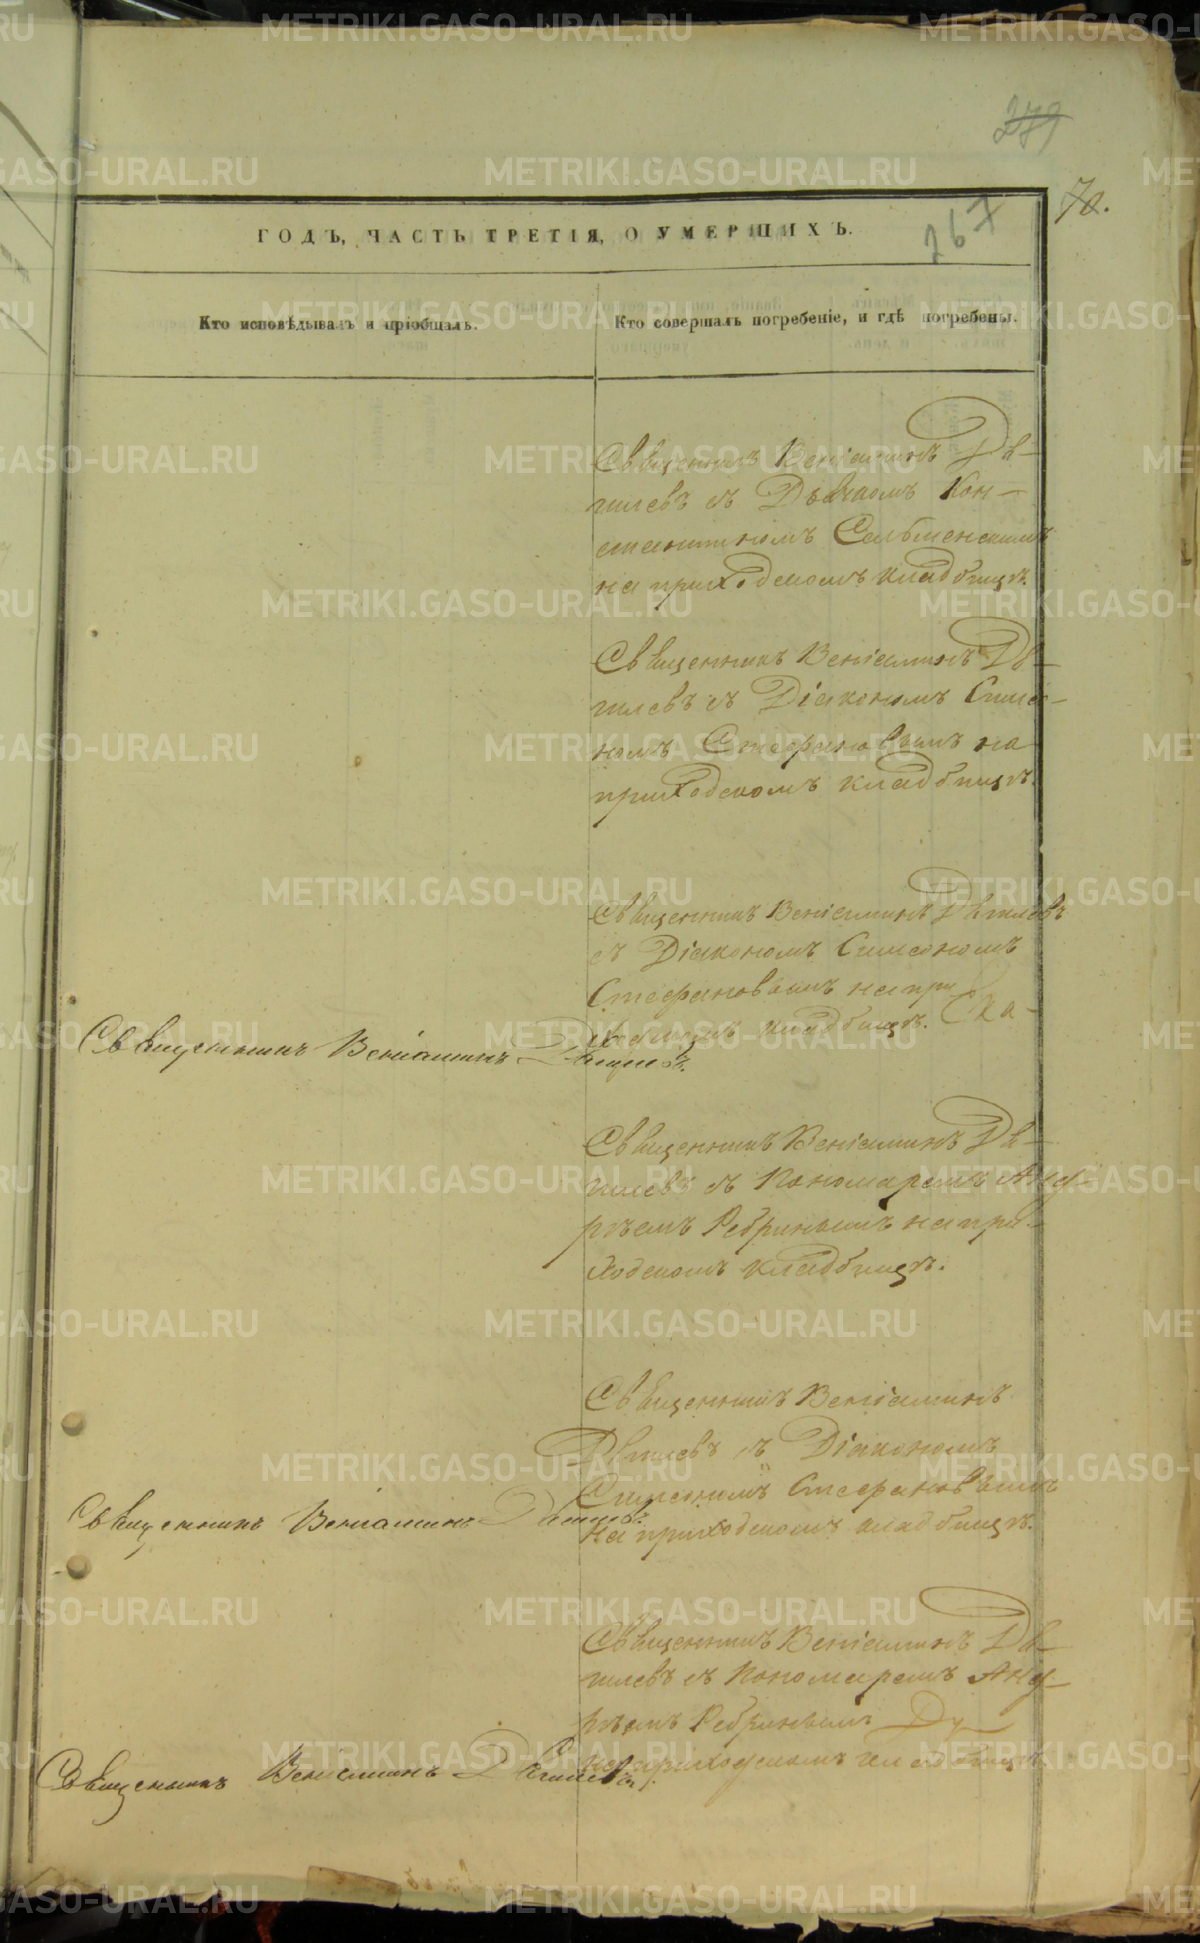 279
70.
267
ГОДЪ, ЧАСТЬ ТРЕТІЯ, О УМЕРШИХЪ.
Кто исповѣдывалъ и пріобщалъ.
Кто совершалъ погребеніе, и гдѣ погребены.
Священникъ Веніаминъ Дя-
гилевъ съ Дьячкомъ Кон-
стантиномъ Сельменскимъ
на приходскомъ кладбищѣ.
Священникъ Веніаминъ Дя-
гилевъ съ Діакономъ Симео-
номъ Стефановымъ на
приходскомъ кладбищѣ.
Священникъ Веніаминъ Дягилевъ
съ Діакономъ Симеономъ
Стефановымъ на при
ходскомъ кладбищѣ.
Священникъ Веніаминъ Дягилевъ.
Священникъ Веніаминъ Дя-
гилевъ съ Пономаремъ Анд-
реемъ Ребринымъ на при-
ходскомъ кладбищѣ.
Священникъ Веніаминъ
Дягилевъ съ Діакономъ
Симеономъ Стефановымъ
на приходскомъ кладбищѣ.
Священникъ Веніаминъ Дягилевъ.
Священникъ Веніаминъ Дя-
гилевъ съ Пономаремъ Анд-
реемъ Ребринымъ
на приходскомъ кладбищѣ.
Священникъ Веніаминъ Дягилевъ.
METRIKI.GASO-URAL.RU